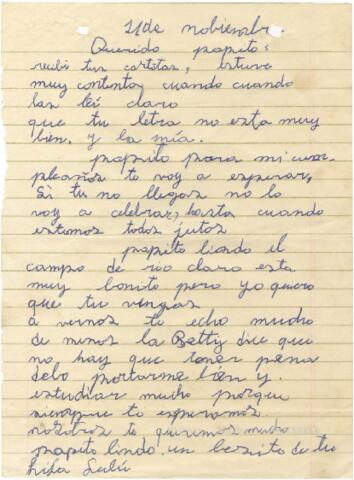 21 de nobiembre.
Querido papito:
recibi tus cartitas, estuve
muy contenta, cuando cuando
las leí claro
que tu letra no esta muy
bien. y la mía.
papito para mi cum
pleaños te voy a esperar,
Si tu no llegas no lo
voy a celebrar, hasta cuando
estemos todos jutos
papito lindo el
campo de rio claro esta
muy bonito pero yo quiero
que tu vengas
a vernos te echo mucho
de menos la Betty dice que
no hay que tener pena
debo portarme bien y.
estudiar mucho porque
siempre te esperamos
nosotros te queremos mucho
papito lindo. un besito de tu
hija Lulú